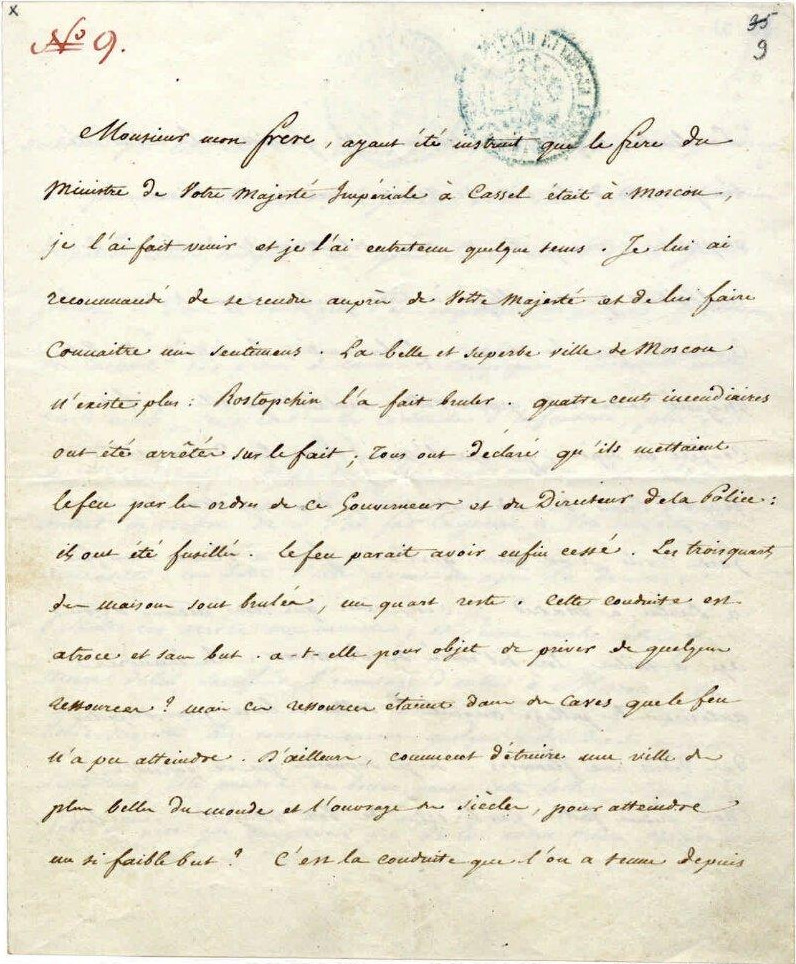 x
№ 9.
35
9
Monsieur mon frere, ayant été instruit que le frere du
Ministre de Votre Majesté Impériale à Cassel était à Moscou,
je l'ai fait venir et je l'ai entretenu quelque tems. Je lui ai
recommandé de se rendre auprès de Votre Majesté et de lui faire
connaitre mes sentimens. La belle et superbe ville de Moscou
n'existe plus: Rostopchin l'a fait bruler. quatre cents incendiaires
ont été arrêtés sur le fait; tous ont déclaré qu'ils mettaient
le feu par les ordres de ce Gouverneur et du Directeur de la Police:
ils ont été fusillés. le feu parait avoir enfin cessé. Les trois quarts
des maisons sont brulées, un quart reste. cette conduite est
atroce et sans but. a-t-elle pour objet de priver de quelques
ressources? mais ces ressources étaient dans des caves que le feu
n'a pu atteindre. D'ailleurs, comment détruire une ville des
plus belles du monde et l'ouvrage des siècles, pour atteindre
un si faible but? C'est la conduite que l'on a tenue depuis